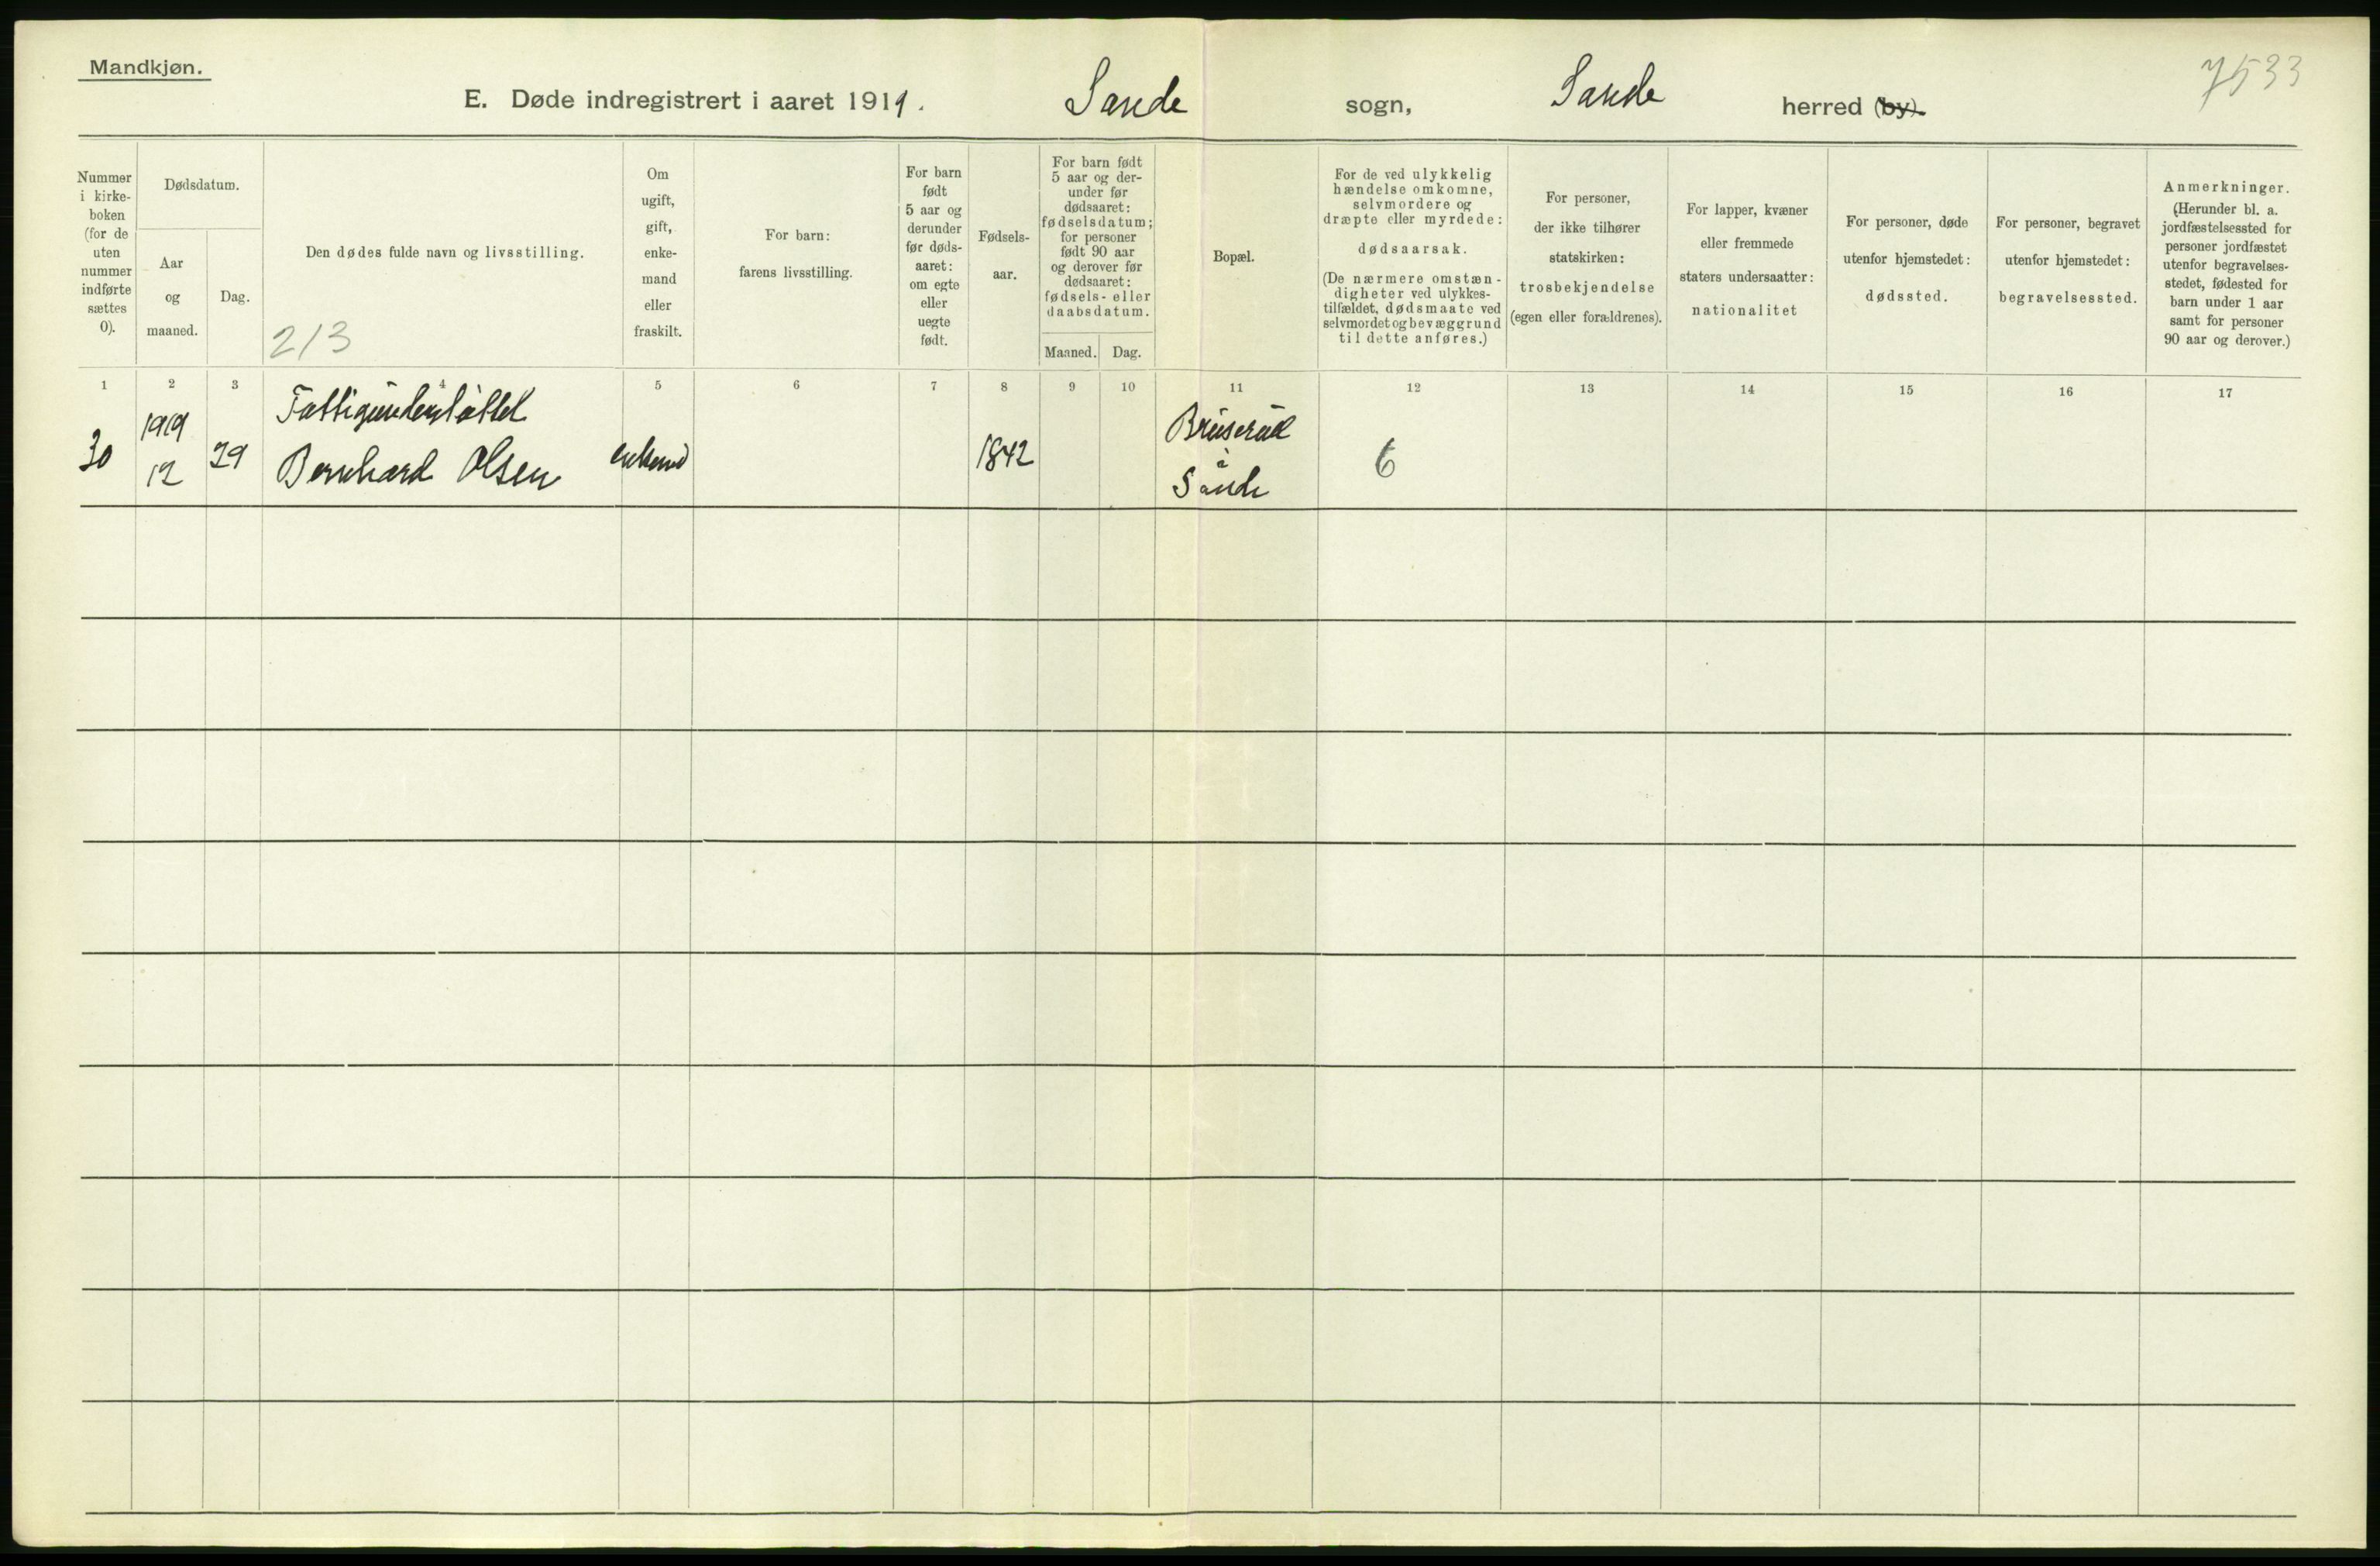 Mandkjøn.
E. Døde indregistrert i aaret 1919. Sande sogn, Sande herred (by).
7533
Nummer
i kirke-
boken
(for de
uten
nummer
indførte
sættes
0).
Dødsdatum.
Aar
og
maaned.
Dag.
Den dødes fulde navn og livsstilling.
213
Om
ugift,
gift,
enke-
mand
eller
fraskilt.
For barn:
farens livsstilling.
For barn
født
5 aar og
derunder
før døds-
aaret:
om egte
eller
uegte
født.
Fødsels-
aar.
For barn født
5 aar og der-
under før
dødsaaret:
fødselsdatum;
for personer
født 90 aar
og derover før
dødsaaret:
fødsels- eller
daabsdatum.
Maaned. Dag.
Bopæl.
For de ved ulykkelig
hændelse omkomne,
selvmordere og
dræpte eller myrdede:
dødsaarsak.
(De nærmere omstæn-
digheter ved ulykkes-
tilfældet, dødsmaate ved
selvmordet og bevæggrund
til dette anføres.)
For personer,
der ikke tilhører
statskirken:
trosbekjendelse
(egen eller forældrenes).
For lapper, kvæner
eller fremmede
staters undersaatter:
nationalitet
For personer, døde
utenfor hjemstedet:
dødssted.
For personer, begravet
utenfor hjemstedet:
begravelsessted.
Anmerkninger.
(Herunder bl. a.
jordfæstelsessted for
personer jordfæstet
utenfor begravelses-
stedet, fødested for
barn under 1 aar
samt for personer
90 aar og derover.)
1 2 3 4 5 6 7 8 9 10 11 12 13 14 15 16 17
1919 Fattigunderstøttet Bruserud
30 12 29 Bernhard Olsen enkem̄d 1842 Sande 6